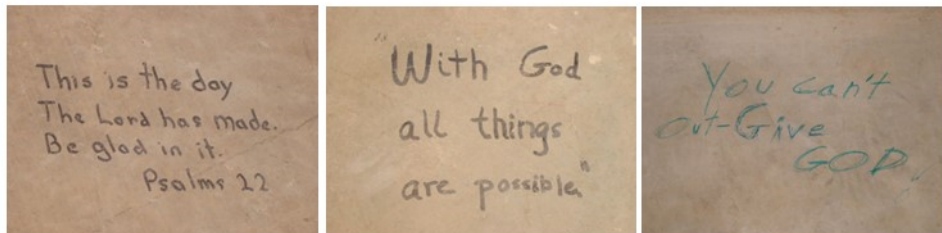 This is the day
The Lord has made.
Be glad in it.
Psalms 22
"With God
all things
are possible."
You can't
out-Give
GOD.